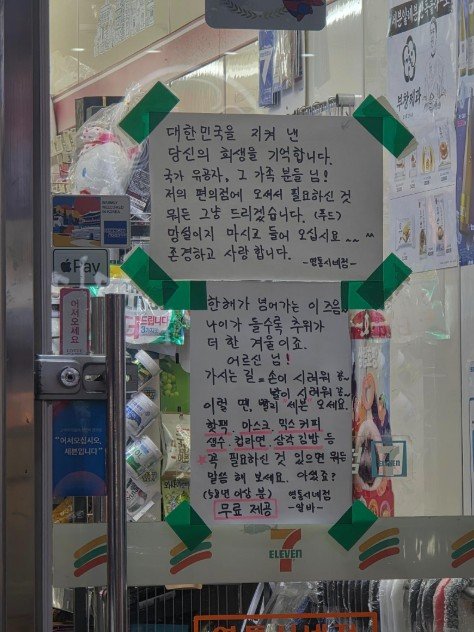 대한민국을 지켜 낸
당신의 희생을 기억합니다.
국가 유공자, 그 가족 분들 님!
저의 편의점에 오셔서 필요하신 것
뭐든 그냥 드리겠습니다. (푸드)
망설이지 마시고 들어 오십시요~~^^
존경하고 사랑합니다.
-영통시네점-
Pay
어서오세요
한해가 넘어가는 이즈음~
나이가 들수록 추위가
더 한 겨울이죠.
어르신 님!
가시는 길 = 손이 시려워 꽁~
발이 시려워 꽁~
이럴 땐, 빨리 세븐 오세요.
핫팩, 마스크, 믹스 커피
생수, 컵라면, 삼각 김밥 등
꼭 필요하신 것 있으면 뭐든
말씀 해 보세요. 아셨죠?
(58년 이상 분) 영통시네점
무료 제공 -알바-
"어서오십시오,
세븐입니다"
7
ELEVEN
ELEVEN